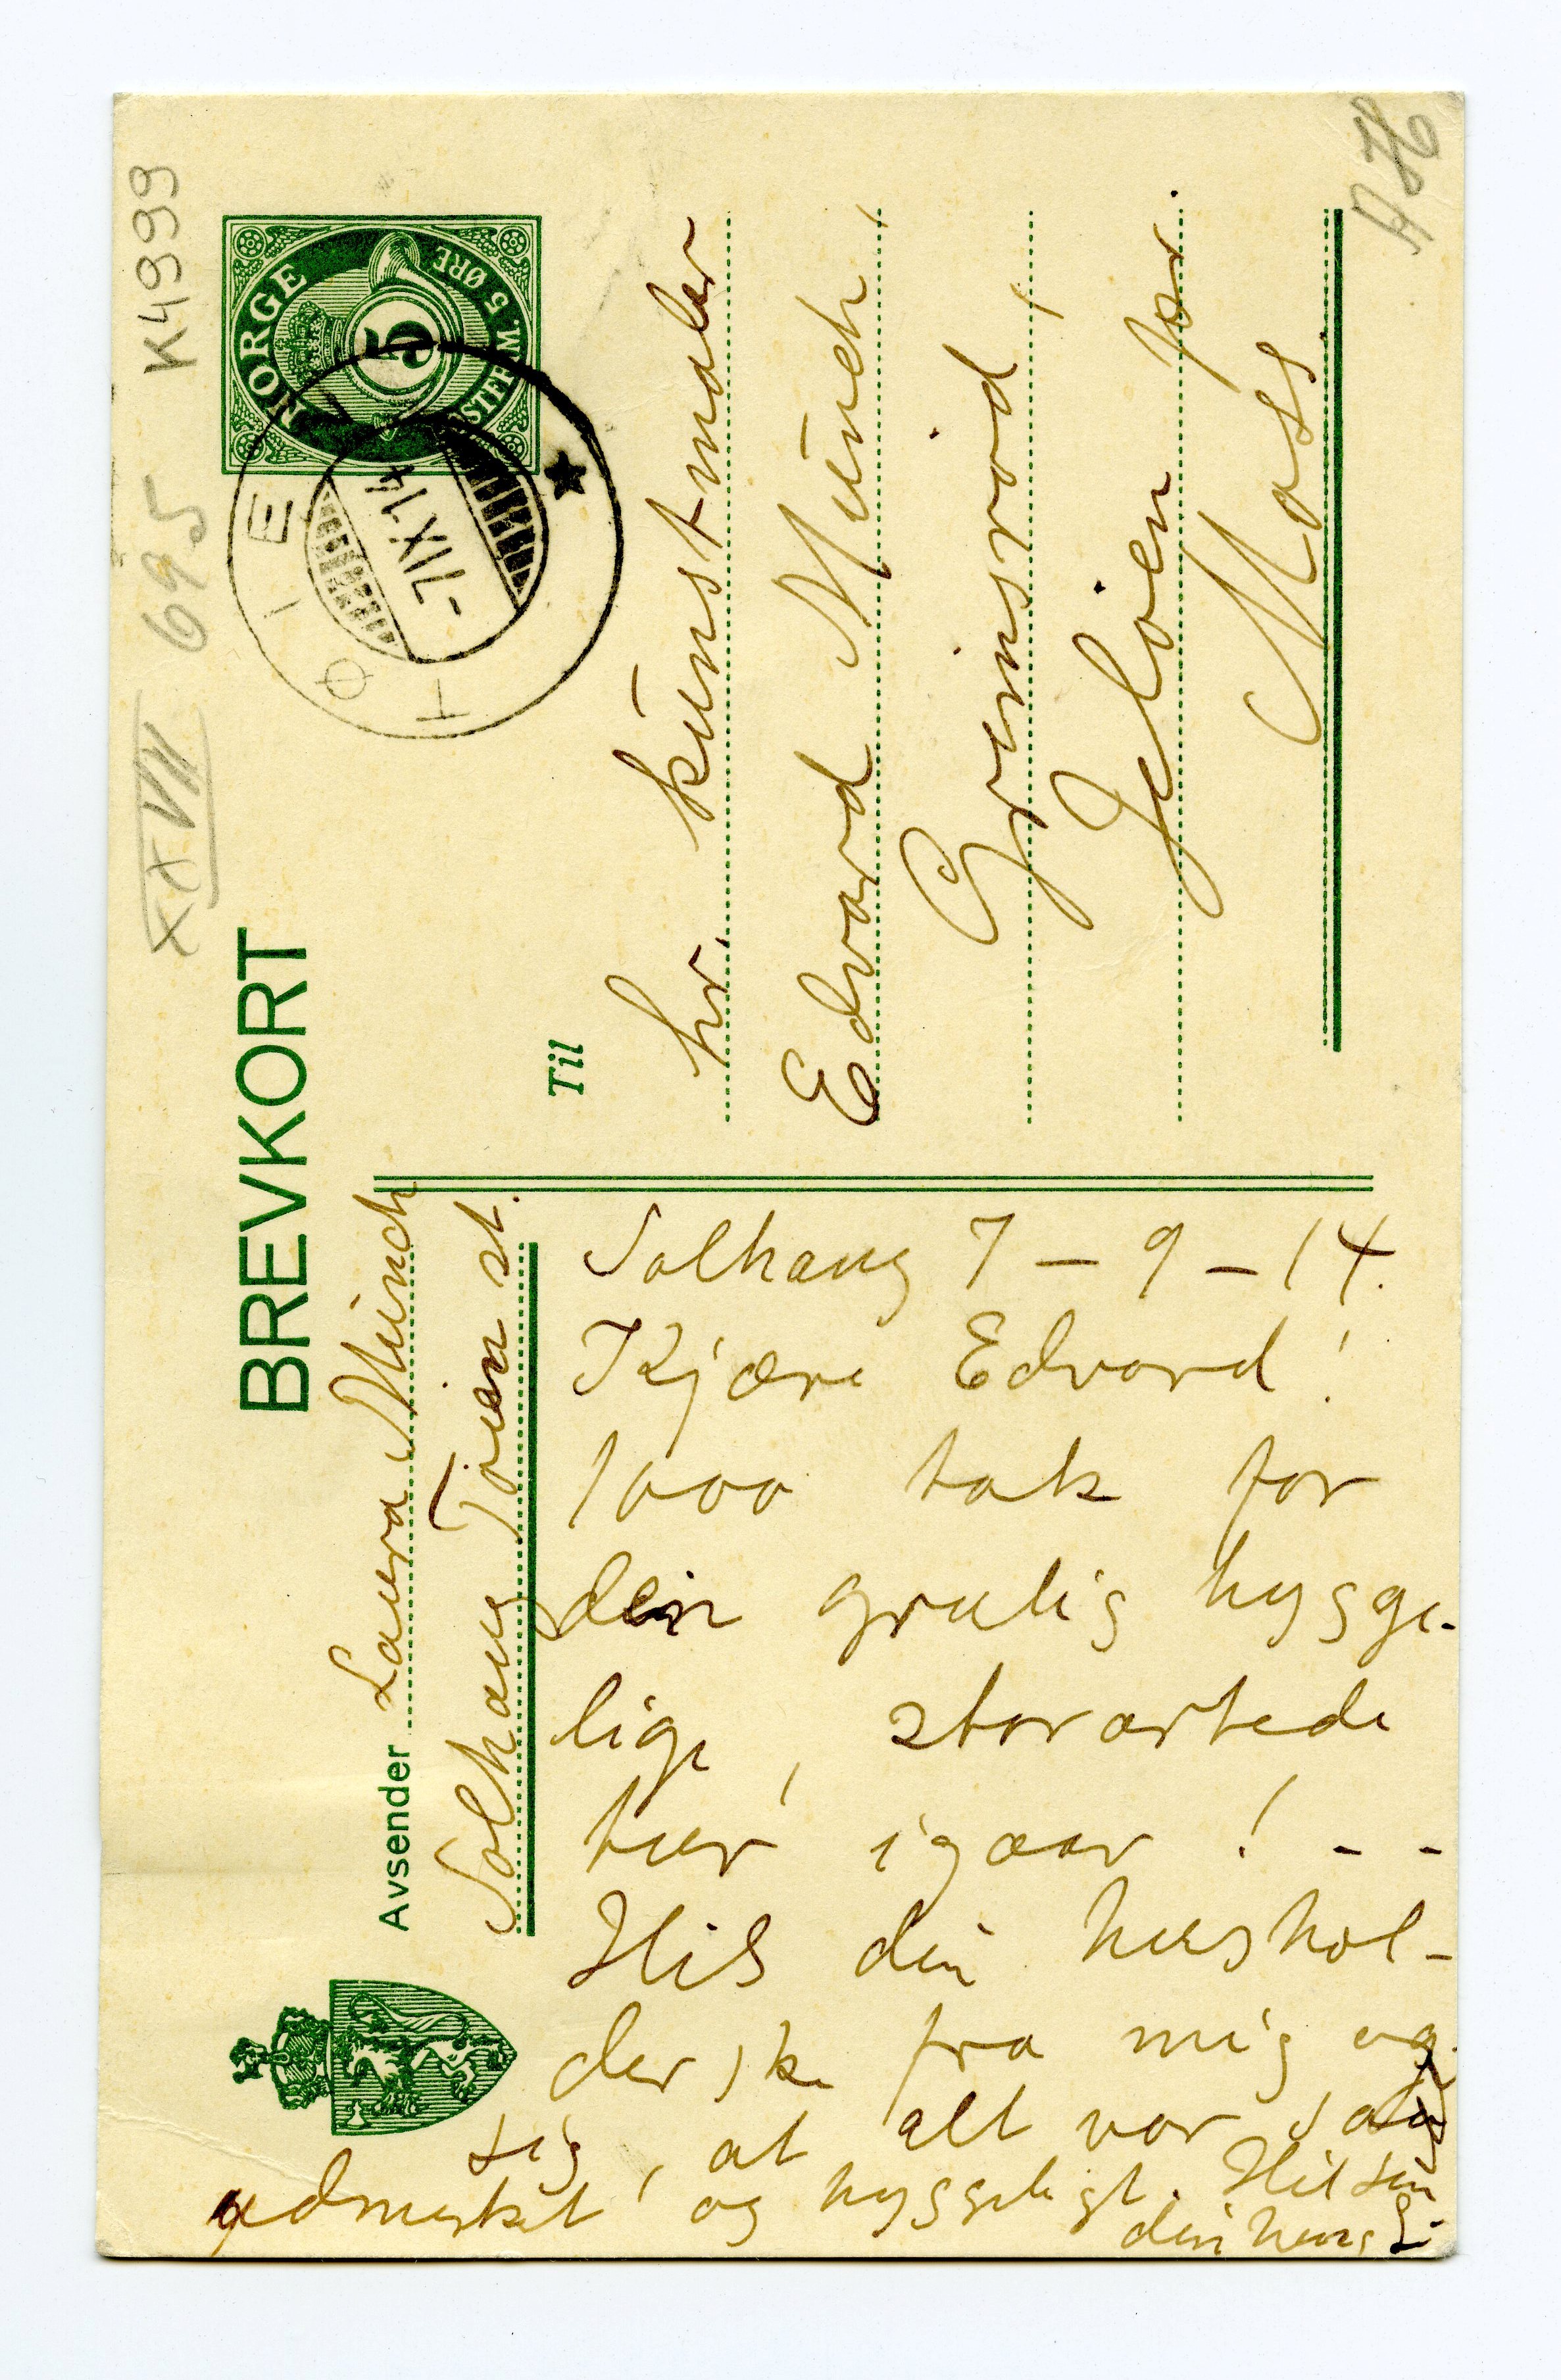 BREVKORT
K4999
695
XXVII
AH
NORGE
5
5 ØRE
TØIEN
-7 IX 14
Avsender Laura Münch
Solhaug Tøien st.
Til
hr. kunstmaler
Edvard Münch,
Grimsrød,
Jeløen pr.
Moss.
Solhaug 7 – 9 – 14.
Kjære Edvard!
1000 tak for
den grulig hygge-
lige, storartede
tur igaar! - -
Hils din hushol-
derske fra mig og
sig, at alt var saa
udmerket og hyggeligt. Hilsen
din heng. L.